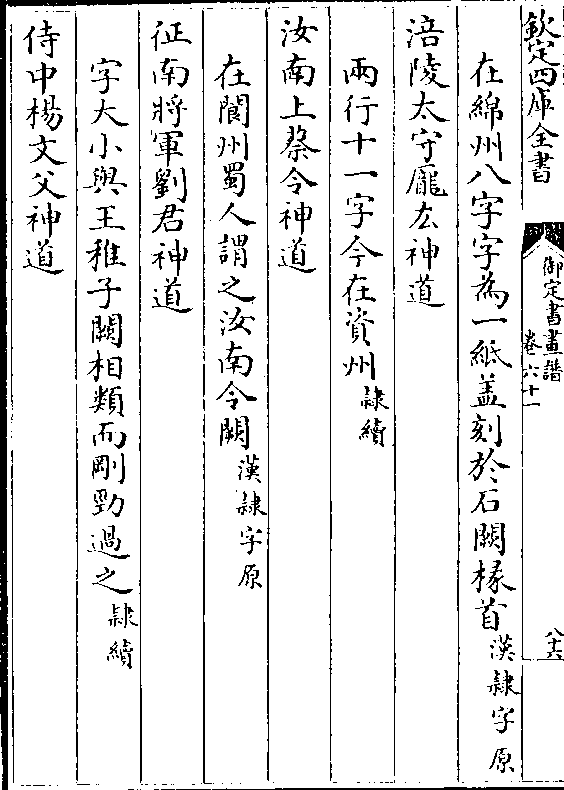 欽定四庫全書
御定書畫譜
卷六十一
八十六
在綿州八字字為一紙盖刻於石闕椽首漢隷字原
涪陵太守龎厷神道
兩行十一字今在資州隷續
汝南上蔡令神道
在閬州蜀人謂之汝南令闕漢隷字原
征南將軍劉君神道
字大小與王稚子闕相類而剛勁過之隷續
侍中楊文父神道